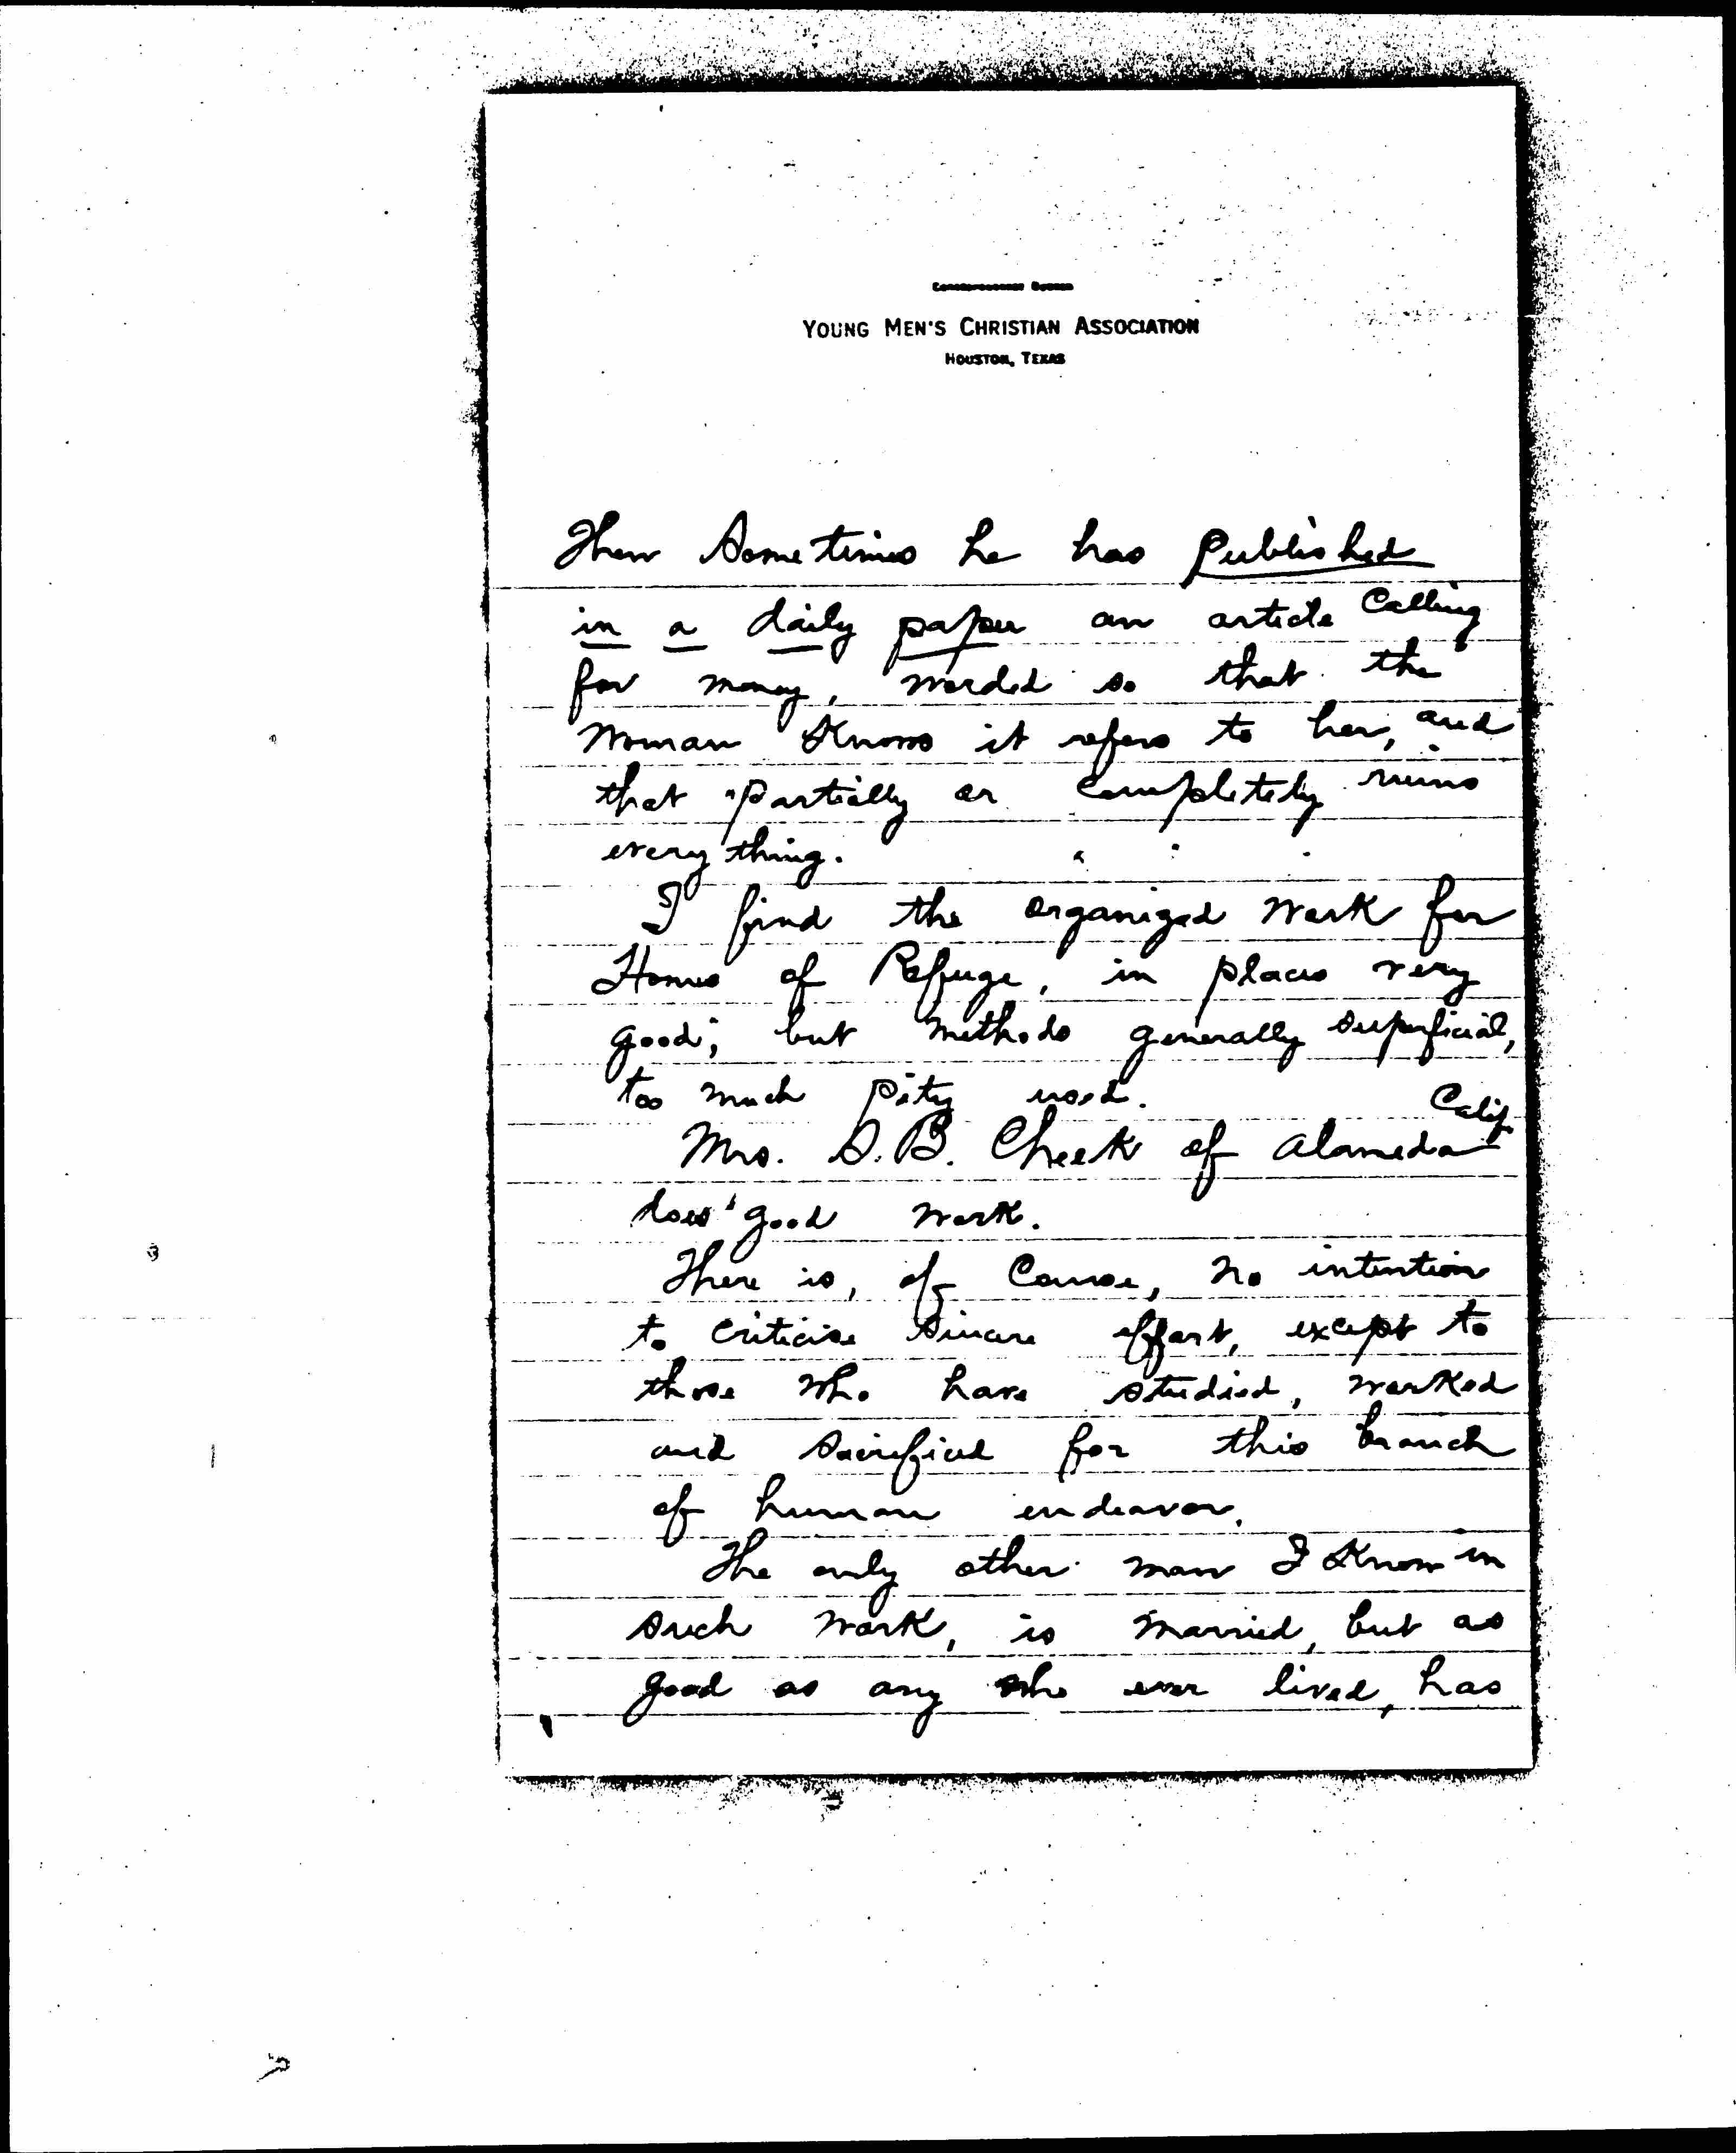 YOUNG MEN'S CHRISTIAN ASSOCIATION
HOUSTON, TEXAS
Then Sometimes he has Published
in a daily paper an article Calling
for money, worded so that the
Woman Knows it refers to her, and
that partially or completely ruins
every thing.
I find the organized Work for
Homes of Refuge, in places very
good; but methods generally superficial,
too much pity used.
Mrs. D. B. Cheek of Alameda Calif.
does good work.
There is, of Course, no intention
to criticise sincere effort, except to
those who have studied, worked
and sacrificed for this branch
of human endeavor.
The only other man I Know in
such work, is married, but as
good as any who ever lived, has